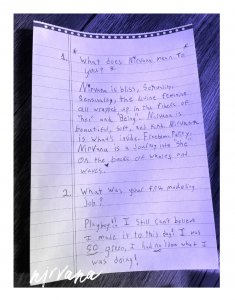 1. What does Nirvana mean to
you?
Nirvana is bliss, Saturation,
Sensuality, the divine feminine
all wrapped up in the fibers of
"her" and Being. Nirvana is
beautiful, soft, and kind. Nirvana
is what's inside. Freedom, Poetry,
Nirvana is a Journey into She
On the backs of whales and
waves.
2. What was your first modeling
Job?
Playboy!! I still can't believe
I made it to this day! I was
SO green, I had no idea what I
was doing!
nirvana